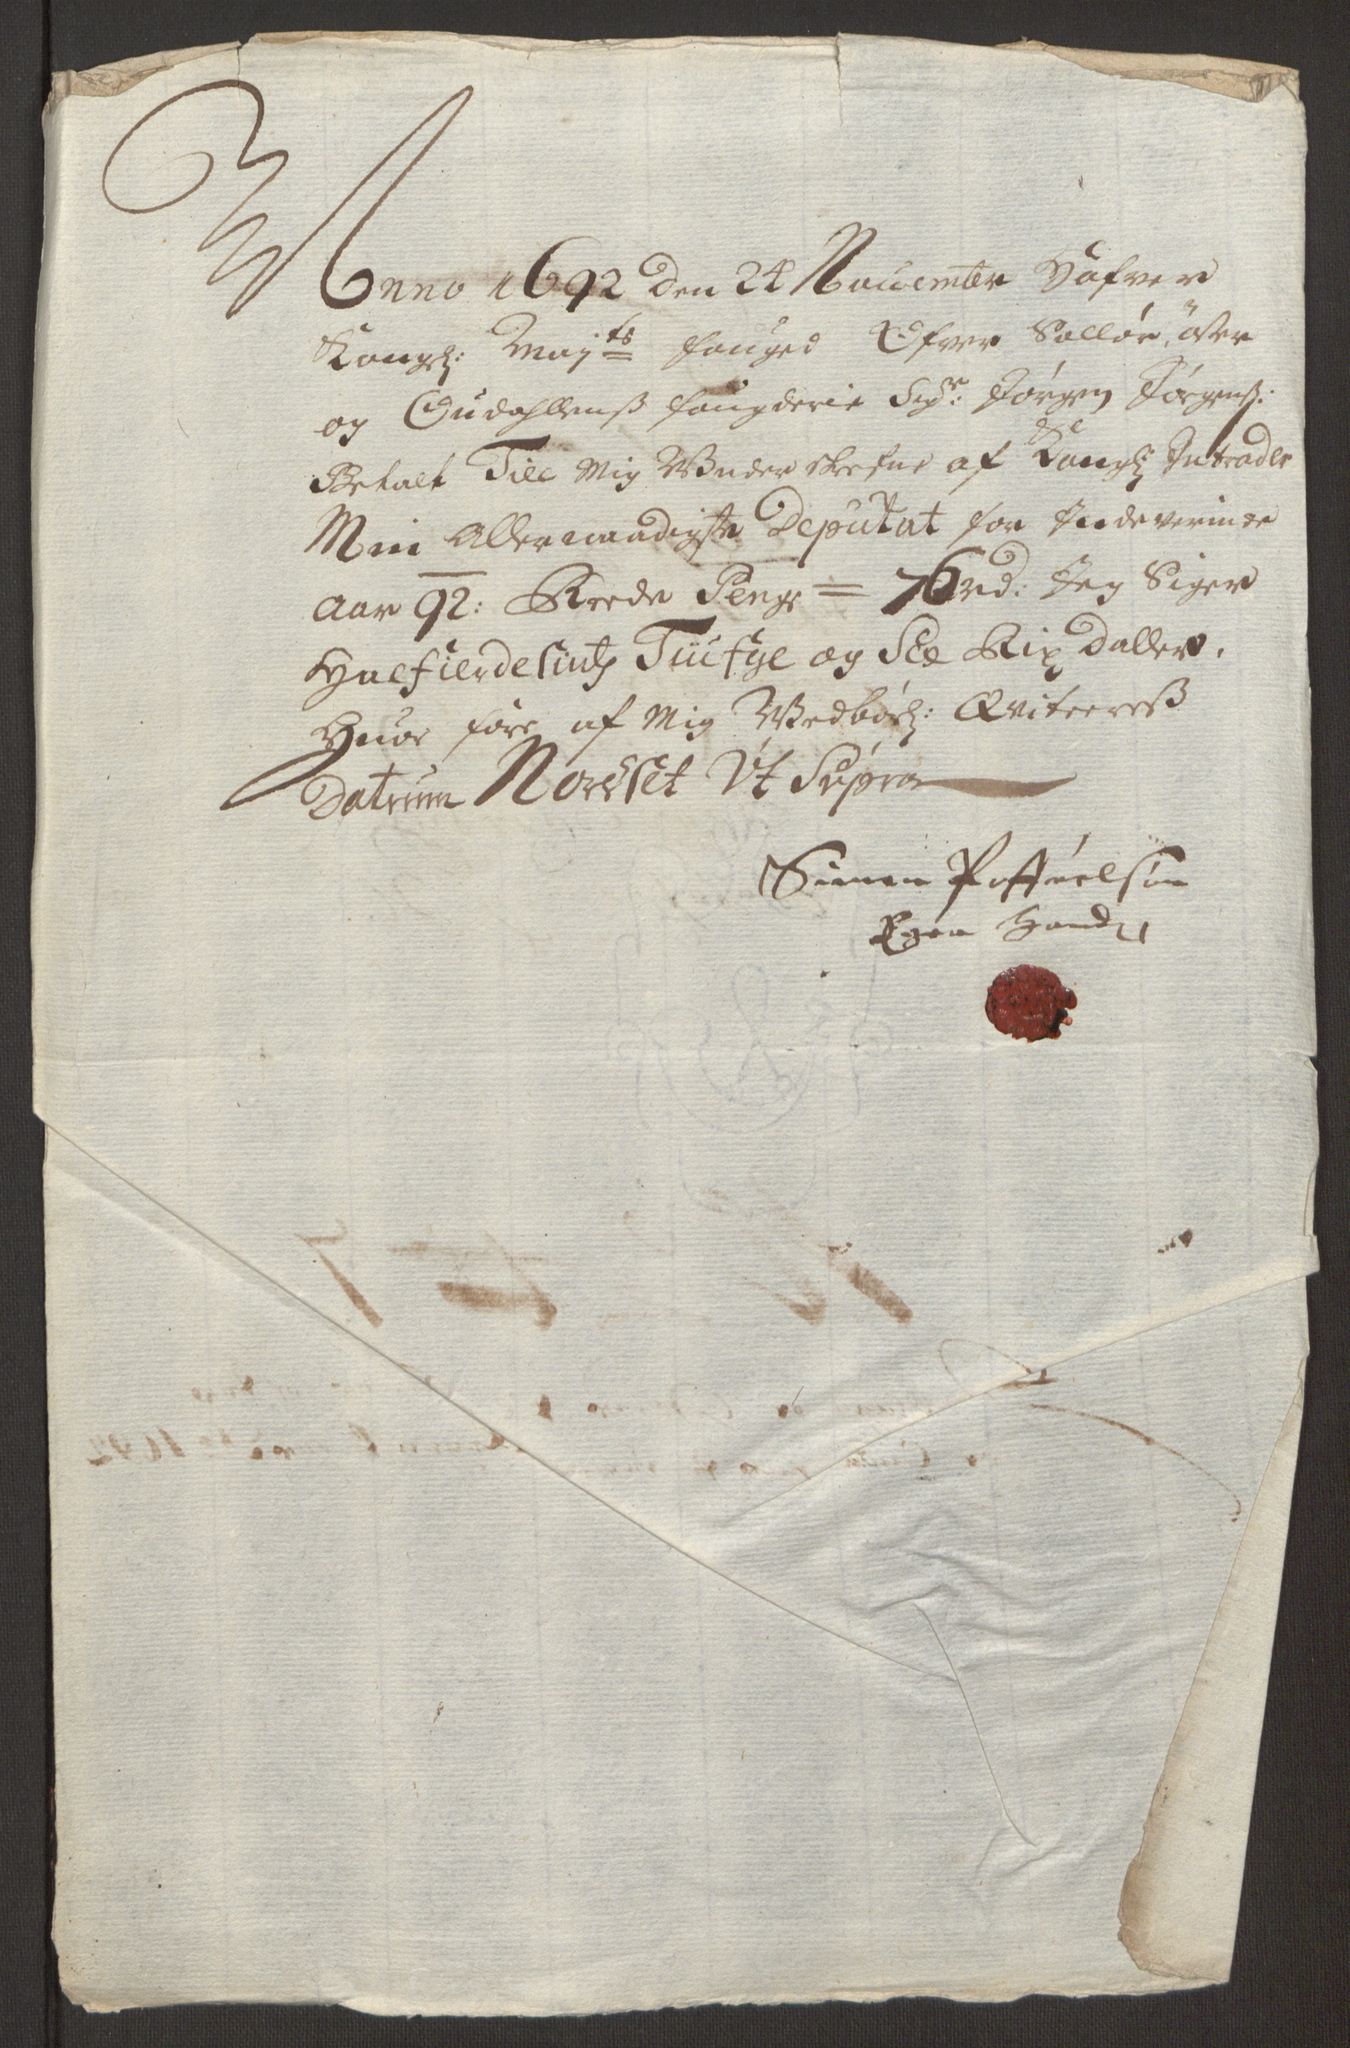 Anno 1692 Den 24 Nouember Hafver
Kongl: Maj:ts fouged Ofver Sollør, öster
og Oudahlens fougderie Sig:r Jørgen Jørgens:
Betalt Till Mig Underskrefne af Kongl Intrader
Min Allernaadigste Deputat for Indeverende
Aar 92: Reede Penge = 76 rd: Jeg Siger
Halfierdesinds Tiufve og Sex Rix Daller,
Huor fore af Mig Wedbørl: Qviteres
Datum Norset Ut Supra
Simen Poffvelsøn
Egen Hand